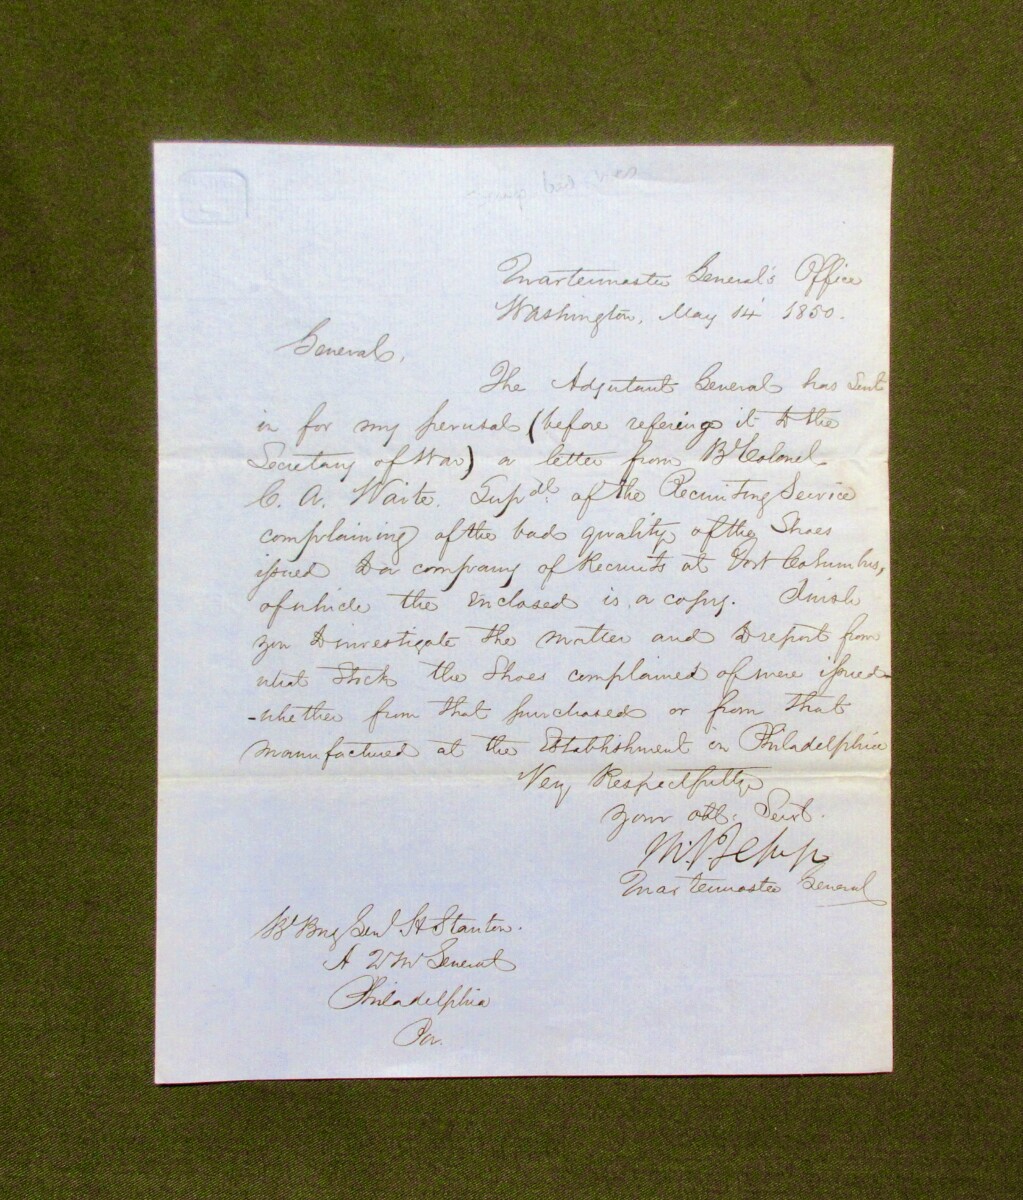 Quartermaster General's Office
Washington, May 14' 1850.
General,
The Adjutant General has sent
in for my perusal (before refering it to the
Secretary of War) a letter from Bt Colonel
C. A. Waite, Supdt of the Recruiting Service
complaining of the bad quality of the Shoes
issued to a company of Recruits at Fort Columbus,
of which the enclosed is a copy. I wish
you to investigate the matter and to report from
what Stock the Shoes complained of were issued
-whether from that purchased or from that
manufactured at the Establishment in Philadelphia
Very Respectfully
your obt. Servt.
Quartermaster General
Bt Brig Genl H Stanton.
A Q M General
Philadelphia
Pa.